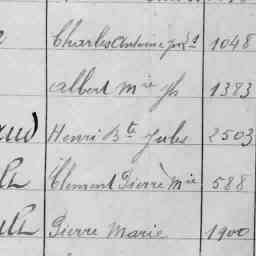 Charles Antoine Jos 1048
Albert Mie Jh 1383
aud Henri Bte Jules 2503
Clement Pierre Mie 588
Pierre Marie 1900